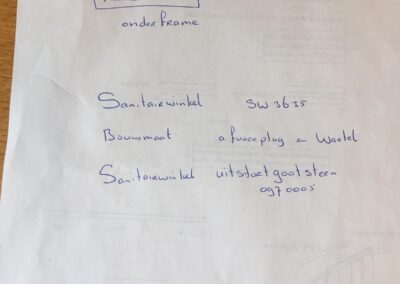 onderframe
Sanitairwinkel SW 3635
Bouwmaat afvoerplug en Wartel
Sanitairwinkel uitstortgootsteen
0970005